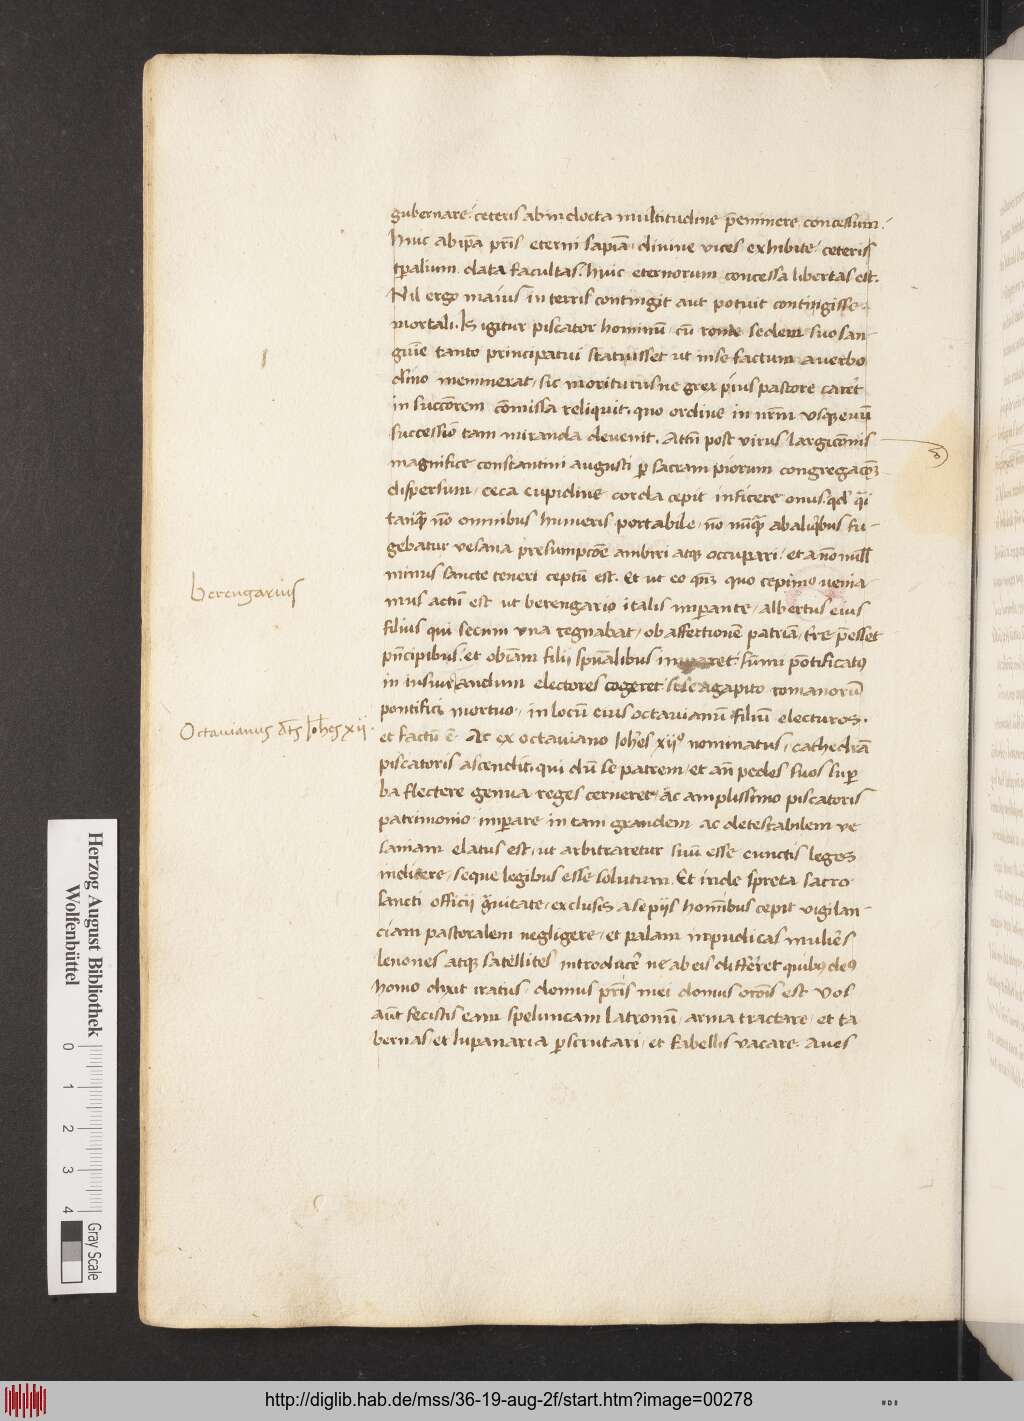 gubernare: ceteris ab indocta multitudine p̄eminere concessum:
Huic ab ip̄a pr̄is eterni sapiā diuine vices exhibite: ceteris
t̄palium data facultas: huic eternorum concessa libertas est.
Nil ergo maius in terris contingit aut potuit contingisse
mortali. Is igitur piscator hominū cū rome sedem suo san-
guīe tanto principatui statuisset ut in se factum a verbo
dīno meminerat, sic moriturus ne grex prius pastore caret
in succōrem cōmissa reliquit. quo ordine in nr̄m usq̄ euū
successiō tam miranda deuenit. Attn̄ post virus largicōnis
magnifice constantini augusti p sacram piorum congregacōēȝ
dispersum, ceca cupidine corda cepit inficere onus. qd̄
tanq̄ȝ nō omnibus humeris portabile, nō nūq̄ȝ ab aliq̄bus fu-
gebatur vesana presumpcōe ambiri atq̄ occupari: et a nōnull
minus sancte teneri ceptū est. Et ut eo quo cepimꝰ venia-
mus actū est ut berengario italis imperante, albertus eius
filius qui secum vna regnabat, ob affectionē patriā, p̄esset
pn̄cipibus. et obiam filii spūalibus sūmi pōtificatꝰ
in iusiurandum electores cogeret se agapito romanorū
pontifici mortuo, in locū eius octauianū filiū electuros.
et factū ē. Ac ex octauiano Joh̄es xijº nominatus, cathedrā
piscatoris ascendit, qui dū se patrem, et an̄ pedes suos sup̄
ba flectere genua reges cerneret, ac amplissimo piscatoris
patrimonio imp̄are in tam grandem ac detestabilem ve
saniam elatus est, ut arbitraretur suū esse cunctis leges
indicere, seque legibus esse solutum. Et inde spreta sacro
sancti officij grauitate, exclusis a se pijs hominibus cepit vigilan-
ciam pastoralem negligere, et palam impudicas mulieres
lenones atq̄ satellites introducere ne ab eis differret quibꝰ deꝰ
homo dixit iratus, domus pr̄is mei domus orōis est vos
aut̄ fecistis eam speluncam latronū, arma tractare, et ta
bernas, et lupanaria p̄scrutari, et fabellis vacare. Aues
berengarius
Octauianus dc̄s Joh̄es xij
Herzog August Bibliothek
Wolfenbüttel
0 1 2 3 4
Gray Scale
http://diglib.hab.de/mss/36-19-aug-2f/start.htm?image=00278